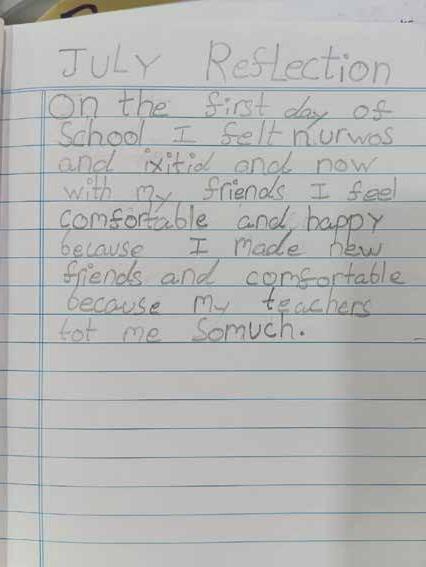 JULY Reflection
On the first day of
School I felt nurwos
and ixitid and now
with my friends I feel
comfortable and happy
because I made new
friends and comfortable
because my teachers
tot me somuch.